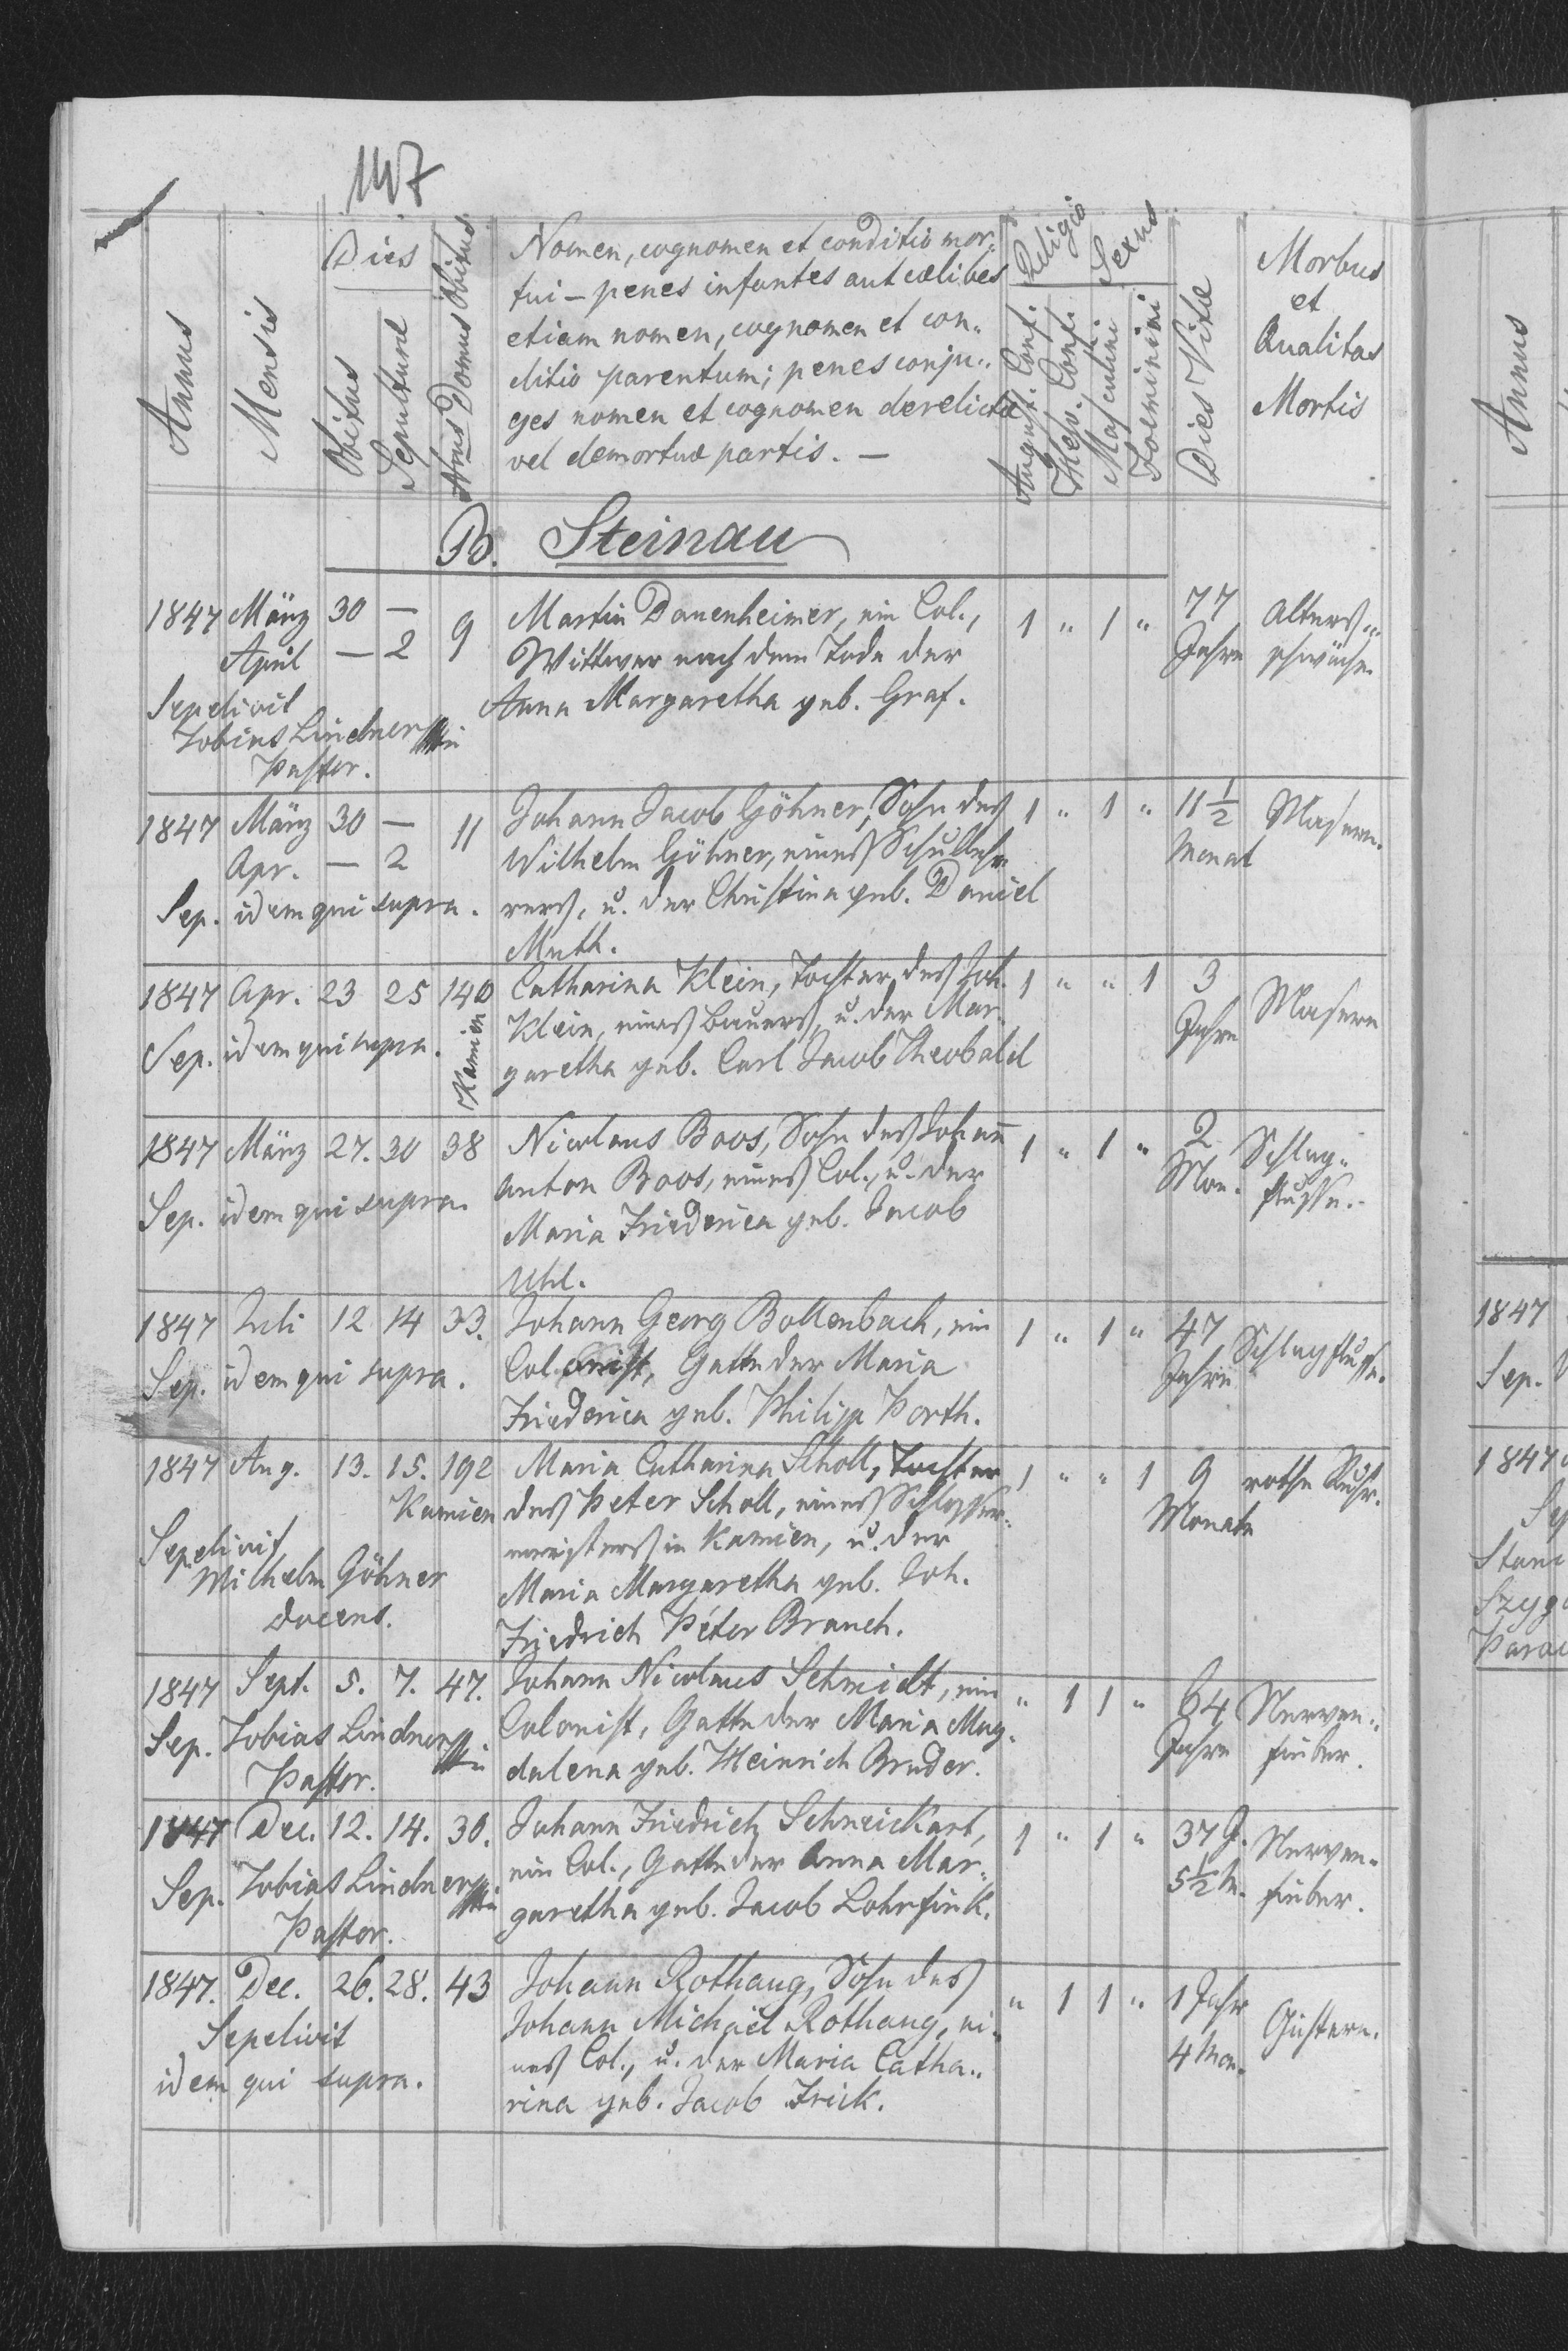 147
Annus
Mensis
Dies
Obitus
Sepulturae
Nrus Domus Obitus
Nomen, cognomen et conditio mor-
tui – penes infantes aut coelibes
etiam nomen, cognomen et con-
ditio parentum; penes conju-
ges nomen et cognomen derelictae
vel demortuae partis. —
Religio
August. Conf.
Helv. Conf.
Sexus
Masculini
Foeminini
Dies Vitae
Morbus
et
Qualitas
Mortis
B. Steinau
1847 März 30 — 9 Martin Dauenheimer, ein Col., 1 " 1 " 77 Alters-
April — 2 Wittwer nach dem Tode der Jahre schwäche
Sepelivit Anna Margaretha geb. Graf.
Tobias Lindner
Pastor.
1847 März 30 — 11 Johann Jacob Göhner, Sohn des 1 " 1 " 11 1/2 Masern.
Apr. — 2 Wilhelm Göhner, eines Schulleh- Monat
Sep. idem qui supra. rers, u. der Christina geb. Daniel
Muth.
1847 Apr. 23 25 140 Catharina Klein, Tochter des Joh. 1 " " 1 3 Masern
Kamien
Sep. idem qui supra. Klein, eines Bauers, u. der Mar- Jahre
garetha geb. Carl Jacob Theobald
1847 März 27. 30 38 Nicolaus Boos, Sohn des Johann 1 " 1 " 2 Schlag-
Sep. idem qui supra. Anton Boos, eines Col., u. der Mon. flusse.
Maria Friederica geb. Jacob
Uhl.
1847 Juli 12 14 33. Johann Georg Bollenbach, ein 1 " 1 " 47 Schlagflusse.
Sep. idem qui supra. Colonist, Gatte der Maria Jahre
Friederica geb. Philipp Porth.
1847 Aug. 13. 15. 192 Maria Catharina Scholl, Tochter 1 " " 1 9 rothe Ruhr.
Kamien des Peter Scholl, eines Schlosser- Monate
Sepelivit meisters in Kamien, u. der
Wilhelm Göhner Maria Margaretha geb. Joh.
docens. Friedrich Peter Brauch.
1847 Sept. 5. 7. 47. Johann Nicolaus Schmidt, ein " 1 1 " 64 Nerven-
Sep. Tobias Lindner Colonist, Gatte der Maria Mag- Jahre fieber.
Pastor. dalena geb. Heinrich Bruder.
1847 Dec. 12. 14. 30. Johann Friedrich Schneickart, 1 " 1 " 37 J. Nerven-
Sep. Tobias Lindner ein Col., Gatte der Anna Mar- 5 1/2 M. fieber.
Pastor. garetha geb. Jacob Lohrfink.
1847. Dec. 26. 28. 43 Johann Rothaug, Sohn des " 1 1 " 1 Jahr
Sepelivit Johann Michael Rothaug, ei- 4 Mon.
idem qui supra. nes Col., u. der Maria Catha-
rina geb. Jacob Frick.
Annus
1847
Sep.
1847